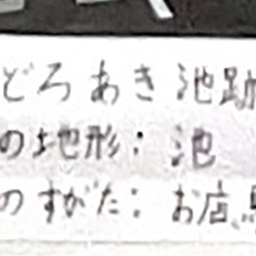 どろあき池跡
の地形：池
のすがた：お店、